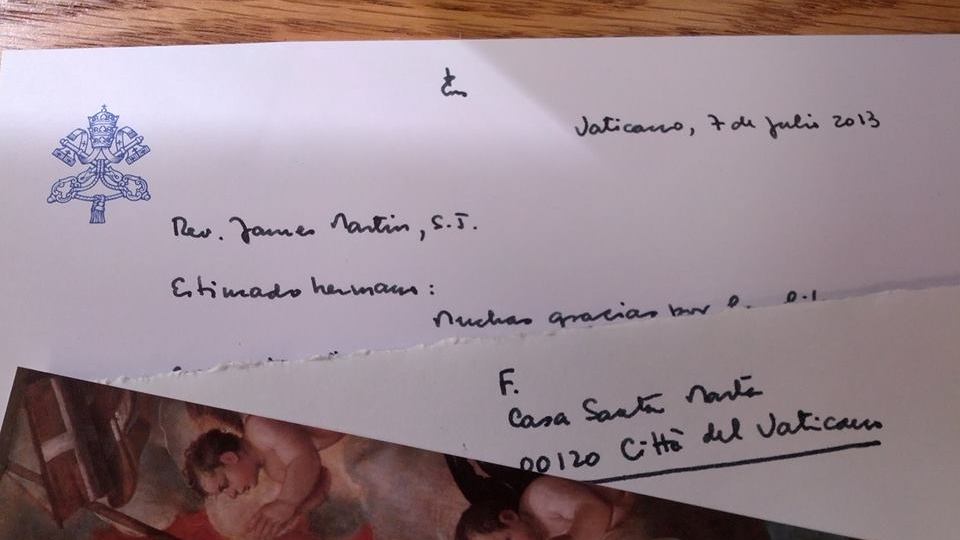 Vaticano, 7 de Julio 2013
Rev. James Martin, S.J.
Estimado hermano:
Muchas gracias por
F.
Casa Santa Marta
00120 Città del Vaticano